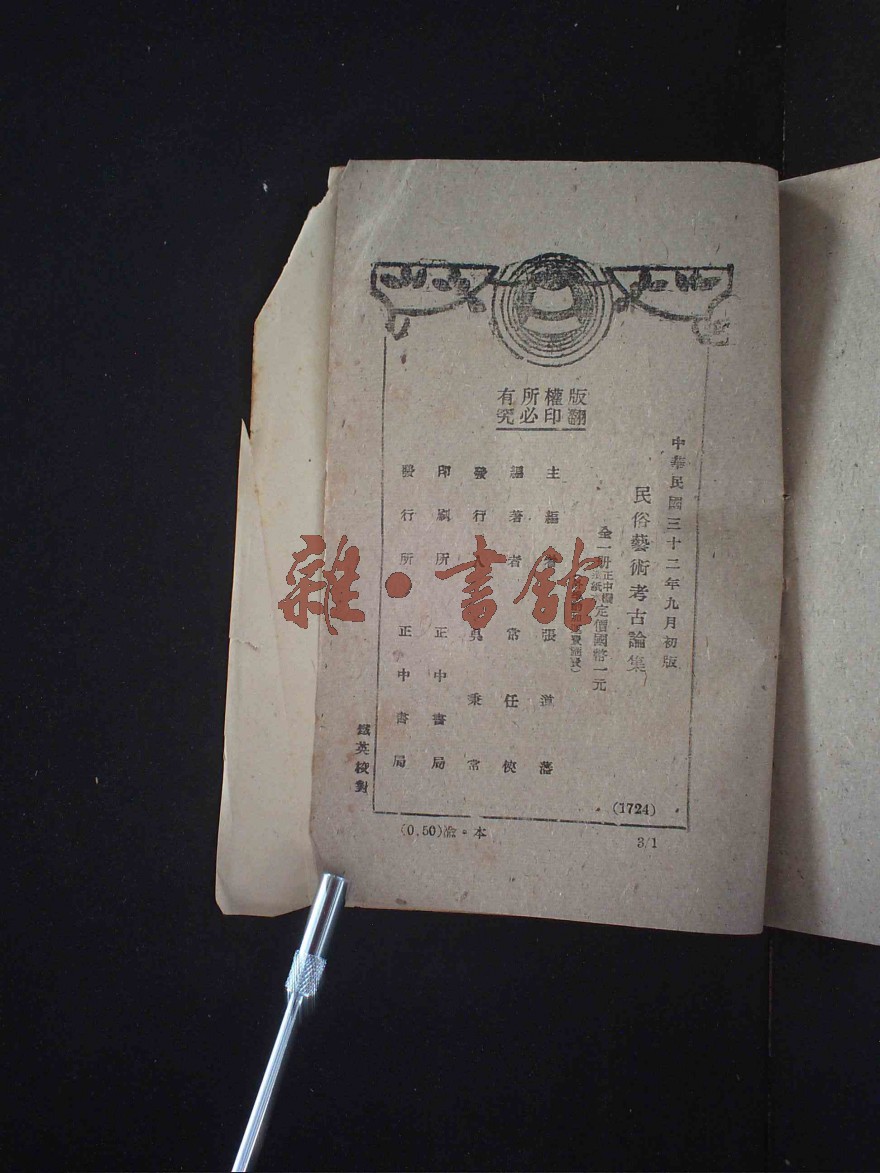 版權所有
翻印必究
中華民國三十二年九月初版
民俗藝術考古論集
全一冊 正中 紙 定價國幣一元
主編者 張道藩
編著者 常任俠
發行人 吳秉常
印刷所 正中書局
發行所 正中書局
鐵英校對
(1724)
(0.50)渝·本
3/1
雜·書館